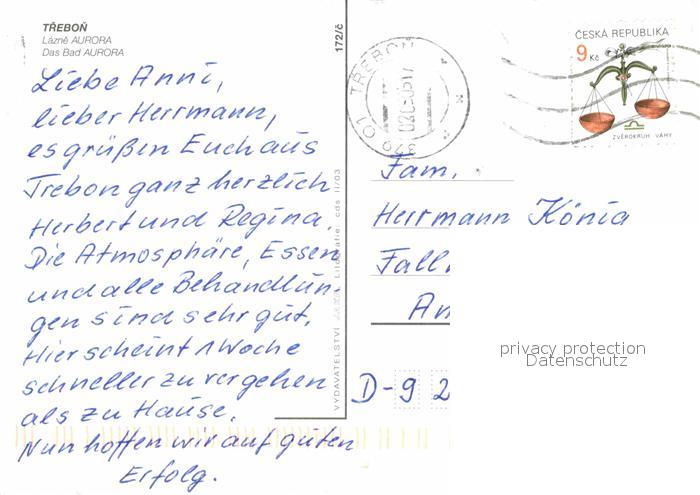 TŘEBOŇ
Lázně AURORA
Das Bad AURORA
172/č
Liebe Anni,
lieber Herrmann,
es grüßen Euch aus
Trebon ganz herzlich
Herbert und Regina.
Die Atmosphäre, Essen
und alle Behandlun-
gen sind sehr gut.
Hier scheint 1 Woche
schneller zu vergehen
als zu Hause.
Nun hoffen wir auf guten
Erfolg.
VYDAVATELSTVÍ
Litografie: cds II/03
379 01 TŘEBOŇ
ČESKÁ REPUBLIKA
9 Kč
ZVĚROKRUH VÁHY
Fam.
Herrmann König
Fall
An
D-9 2
privacy protection
Datenschutz